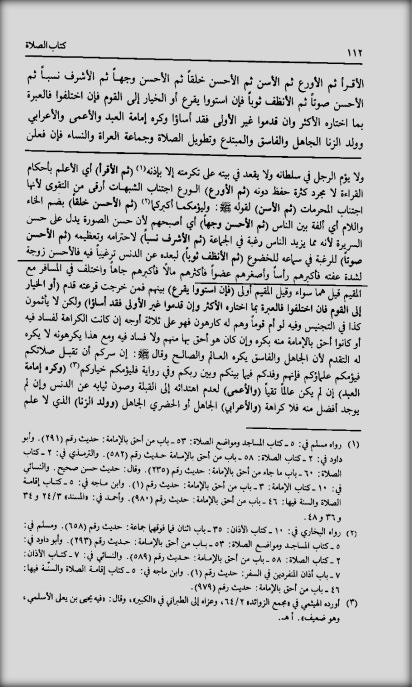 ١١٢ كتاب الصلاة
الأقرأ ثم الأورع ثم الأسن ثم الأحسن خلقاً ثم الأحسن وجهاً ثم الأشرف نسباً ثم
الأحسن صوتاً ثم الأنظف ثوباً فإن استووا يقرع أو الخيار إلى القوم فإن اختلفوا فالعبرة
بما اختاره الأكثر وإن قدموا غير الأولى فقد أساؤا وكره إمامة العبد والأعمى والأعرابي
وولد الزنا الجاهل والفاسق والمبتدع وتطويل الصلاة وجماعة العراة والنساء فإن فعلن
ولا يؤم الرجل في سلطانه ولا يقعد في بيته على تكرمته إلا بإذنه(١) (ثم الأقرأ) أي الأعلم بأحكام
القراءة لا مجرد كثرة حفظ دونه (ثم الأورع) الورع اجتناب الشبهات أرقى من التقوى لأنها
اجتناب المحرمات (ثم الأسن) لقوله ﷺ: وليؤمكما أكبركما(٢) (ثم الأحسن خلقاً) بضم الخاء
واللام أي ألفة بين الناس (ثم الأحسن وجهاً) أي أصبحهم لأن حسن الصورة يدل على حسن
السريرة لأنه مما يزيد الناس رغبة في الجماعة (ثم الأشرف نسباً) لاحترامه وتعظيمه (ثم الأحسن
صوتاً) للرغبة في سماعه للخضوع (ثم الأنظف ثوباً) لبعده عن الدنس ترغيباً فيه فالأحسن زوجة
لشدة عفته فأكبرهم رأساً وأصغرهم عضواً فأكثرهم مالاً فأكبرهم جاهاً واختلف في المسافر مع
المقيم قيل هما سواء وقيل المقيم أولى (فإن استووا يقرع) بينهم فمن خرجت قرعته قدم (أو الخيار
إلى القوم فان اختلفوا فالعبرة بما اختاره الأكثر وإن قدموا غير الأولى فقد أساؤا) ولكن لا يأثمون
كذا في التجنيس وفيه لو أم قوماً وهم له كارهون فهو على ثلاثة أوجه إن كانت الكراهة لفساد فيه
أو كانوا أحق بالإمامة منه يكره وإن كان هو أحق بها منهم ولا فساد فيه ومع هذا يكرهونه لا يكره
له التقدم لأن الجاهل والفاسق يكره العالم والصالح وقال ﷺ: إن سركم أن تقبل صلاتكم
فيؤمكم علماؤكم فإنهم وفدكم فيما بينكم وبين ربكم وفي رواية فليؤمكم خياركم(٣) (وكره إمامة
العبد) إن لم يكن عالماً تقياً (والأعمى) لعدم اهتدائه إلى القبلة وصون ثيابه عن الدنس وإن لم
يوجد أفضل منه فلا كراهة (والأعرابي) الجاهل أو الحضري الجاهل (وولد الزنا) الذي لا علم
(١) رواه مسلم في: ٥ ـ كتاب المساجد ومواضع الصلاة: ٥٣ ـ باب من أحق بالإمامة: حديث رقم (٢٩١). وأبو
داود في: ٢ ـ كتاب الصلاة: ٥٨ ـ باب من أحق بالإمامة حديث رقم (٥٨٢). والترمذي في: ٢ ـ كتاب
الصلاة: ٦٠ ـ باب ما جاء من أحق بالإمامة: حديث رقم (٢٣٥). وقال: حديث حسن صحيح. والنسائي
في: ١٠ ـ كتاب الإمامة: ٣ ـ باب من أحق بالإمامة: حديث رقم (١). وابن ماجه في: ٥ ـ كتاب إقامة
الصلاة والسنة فيها: ٤٦ ـ باب من أحق بالإمامة: حديث رقم (٩٨٠). وأحمد في: (المسند) ٣/ ٢٤ و ٣٤
و ٣٦ و ٤٨.
(٢) رواه البخاري في: ١٠ ـ كتاب الأذان: ٣٥ ـ باب اثنان فما فوقهما جماعة: حديث رقم (٦٥٨). ومسلم في:
٥ ـ كتاب المساجد ومواضع الصلاة: ٥٣ ـ باب من أحق بالإمامة: حديث رقم (٢٩٣). وأبو داود في:
٢ ـ كتاب الصلاة: ٥٨ ـ باب من أحق بالإمامة: حديث رقم (٥٨٩). والنسائي في: ٧ ـ كتاب الأذان:
٧ ـ باب أذان المنفردين في السفر: حديث رقم (١). وابن ماجه في: ٥ ـ كتاب إقامة الصلاة والسنّة فيها:
٤٦ ـ باب من أحق بالإمامة: حديث رقم (٩٧٩).
(٣) أورده الهيثمي في «مجمع الزوائد» ٢/ ٦٤، وعزاه إلى الطبراني في «الكبير»، وقال: «فيه يحيى بن يعلى الأسلمي،
وهو ضعيف». أ هـ.